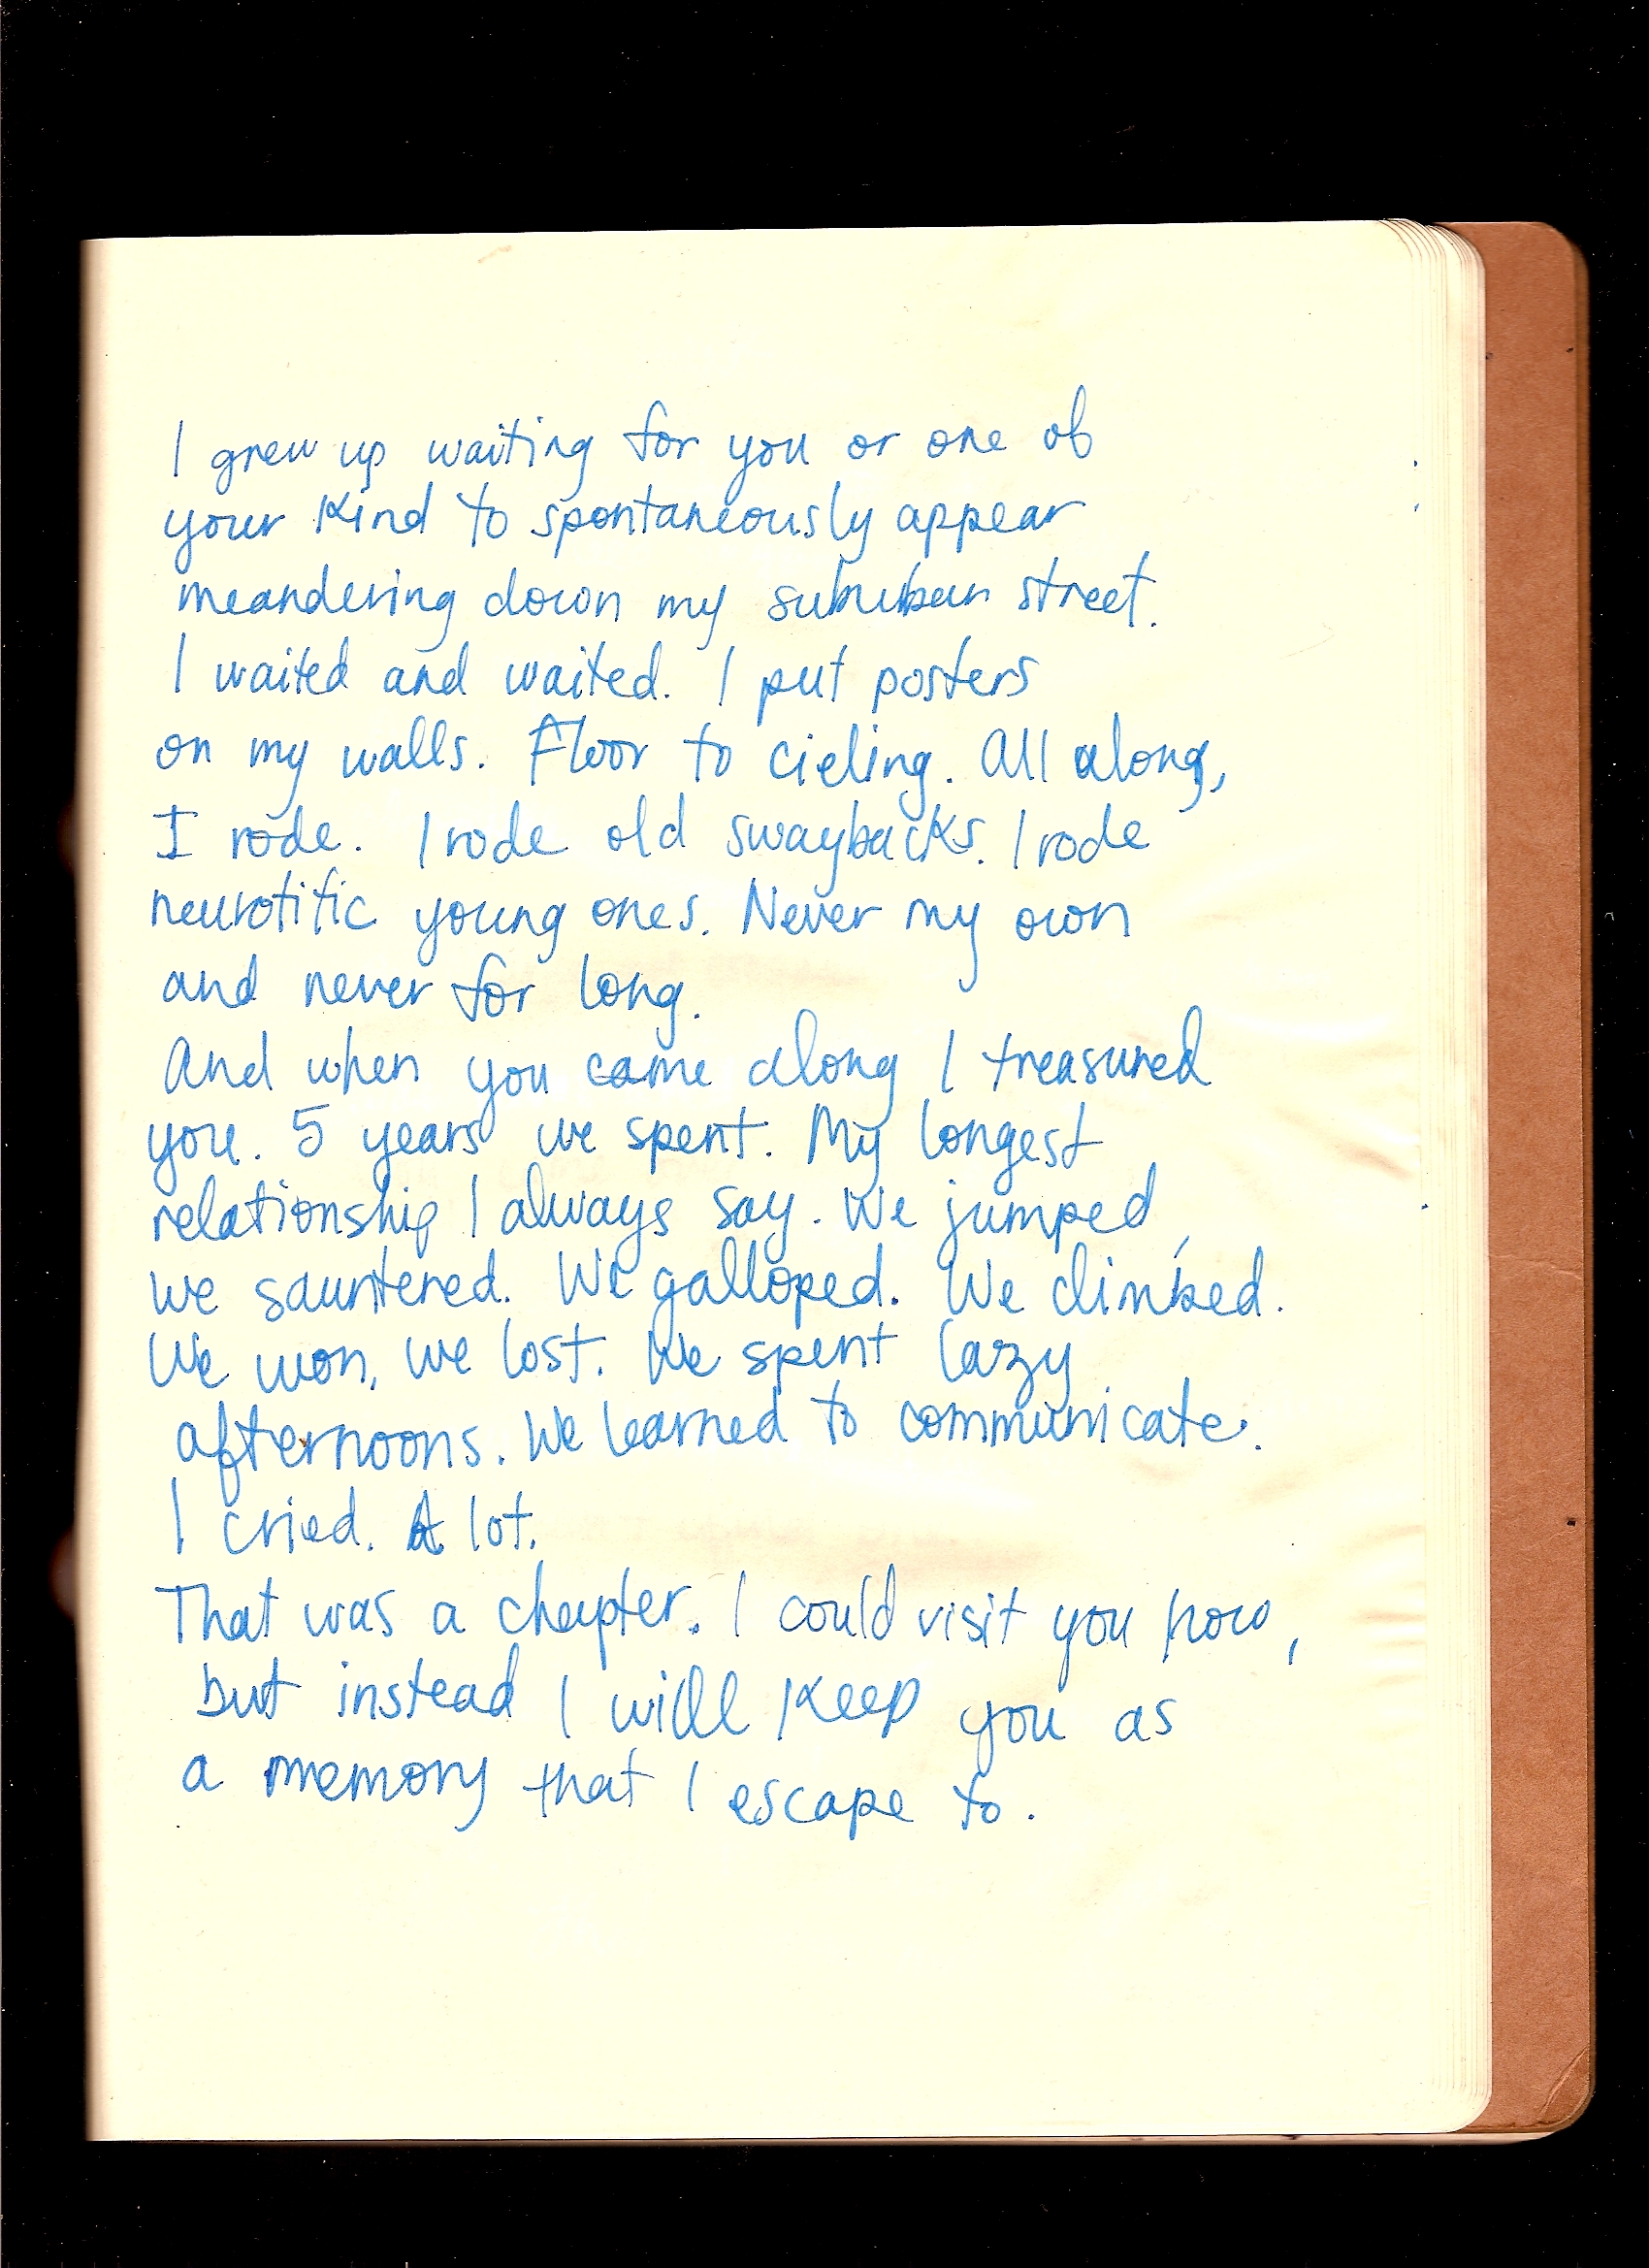 I grew up waiting for you or one of
your kind to spontaneously appear
meandering down my suburban street.
I waited and waited. I put posters
on my walls. Floor to cieling. All along,
I rode. I rode old swaybacks. I rode
neurotitic young ones. Never my own
and never for long.
And when you came along I treasured
you. 5 years we spent. My longest
relationship I always say. We jumped,
we sauntered. We galloped. We climbed.
We won, we lost. We spent lazy
afternoons. We learned to communicate.
I cried. A lot.
That was a chapter. I could visit you now,
but instead I will keep you as
a memory that I escape to.